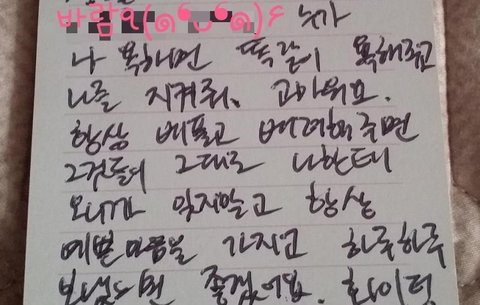 바람 누가
나 욕하면 똑같이 욕해주고
나를 지켜줘. 고마워요.
항상 베풀고 배려해주면
그것들이 그대로 나한테
오니까 잊지말고 항상
예쁜마음을 가지고 하루하루
보냈으면 좋겠어요. 화이팅